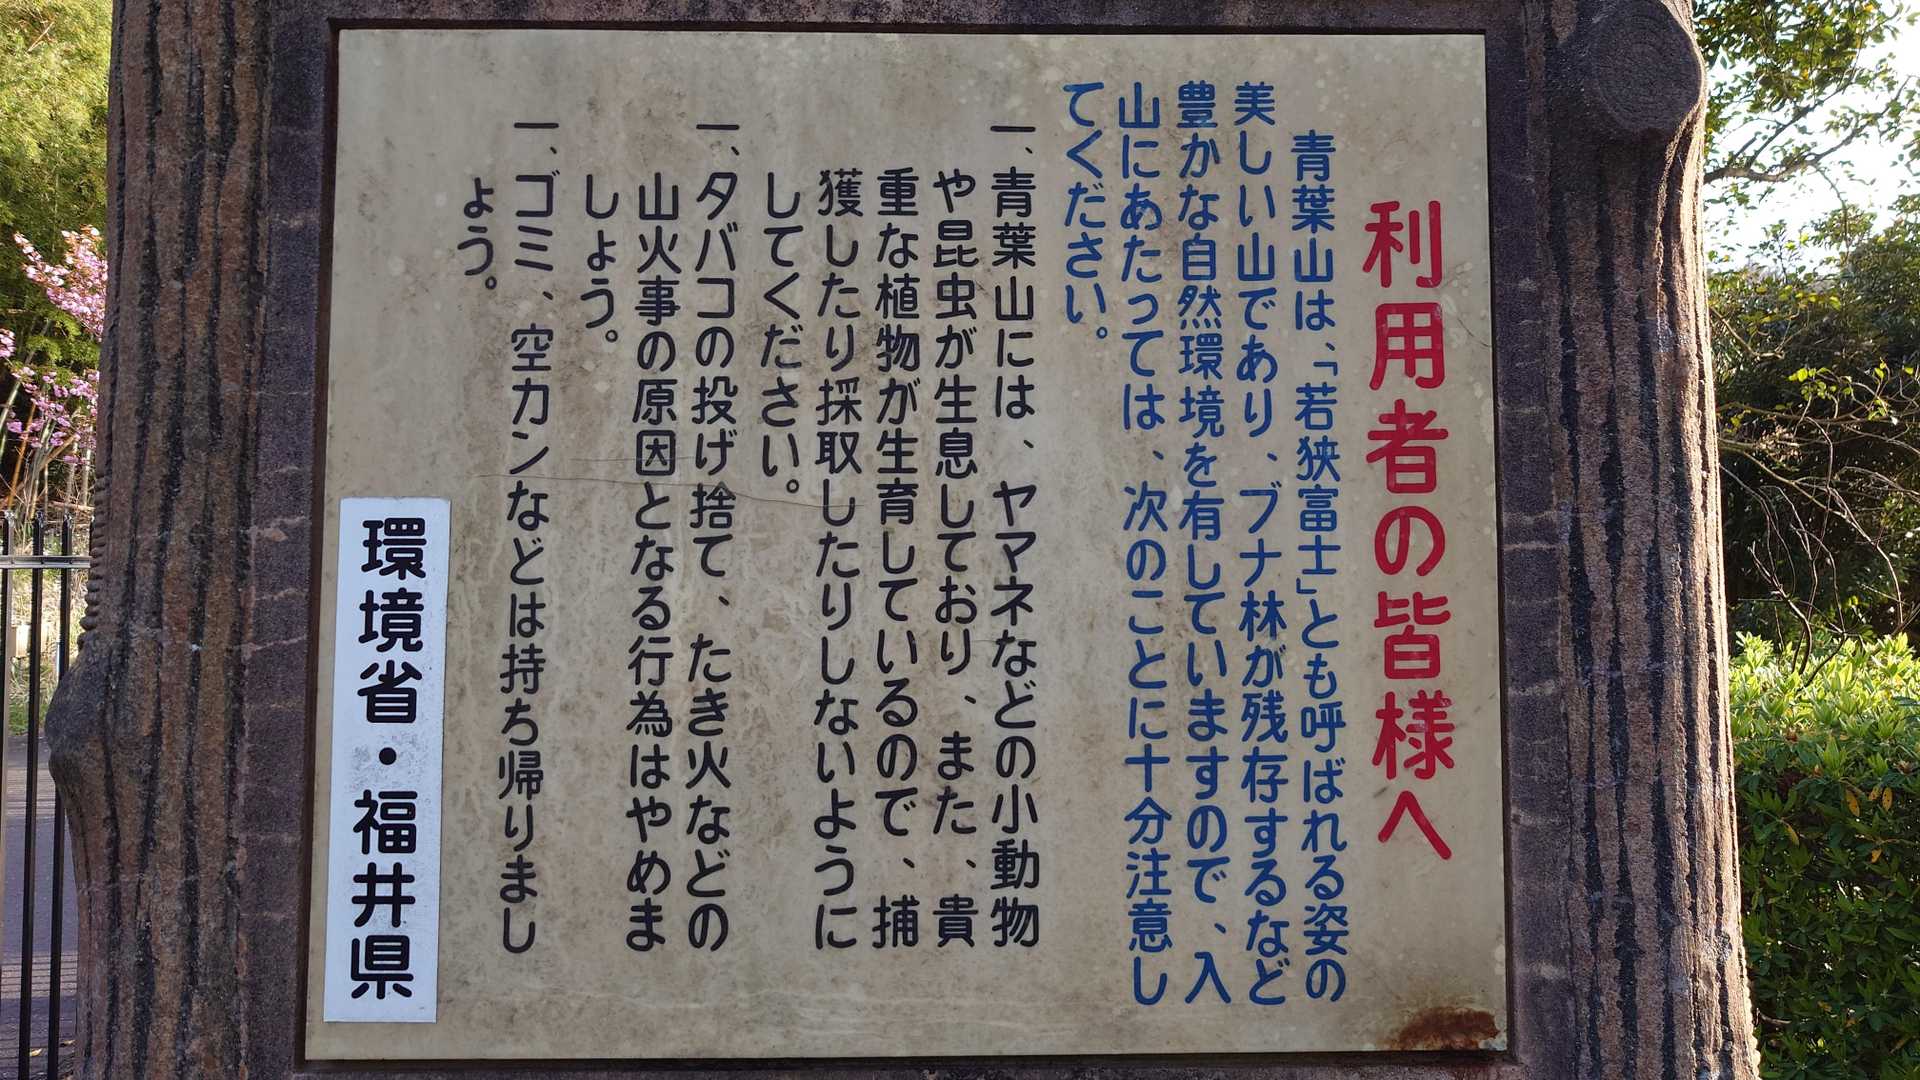 利用者の皆様へ
青葉山は、「若狭富士」とも呼ばれる姿の
美しい山であり、ブナ林が残存するなど
豊かな自然環境を有していますので、入
山にあたっては、次のことに十分注意し
てください。
一、青葉山には、ヤマネなどの小動物
や昆虫が生息しており、また、貴
重な植物が生育しているので、捕
獲したり採取したりしないように
してください。
一、タバコの投げ捨て、たき火などの
山火事の原因となる行為はやめま
しょう。
一、ゴミ、空カンなどは持ち帰りまし
ょう。
環境省・福井県